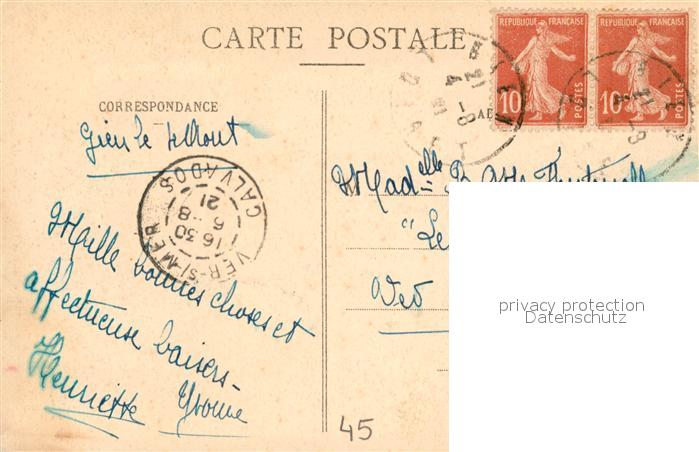 CARTE POSTALE
REPUBLIQUE FRANÇAISE
10
POSTES
REPUBLIQUE FRANÇAISE
10
POSTES
CORRESPONDANCE
AD
le 4 Août
VER-S-MER
16 30
6-8
21
CALVADOS
Mad elle
"Le
Maille bonnes choses et
affectueuse baisers -
Henriette Yvonne
45
privacy protection
Datenschutz